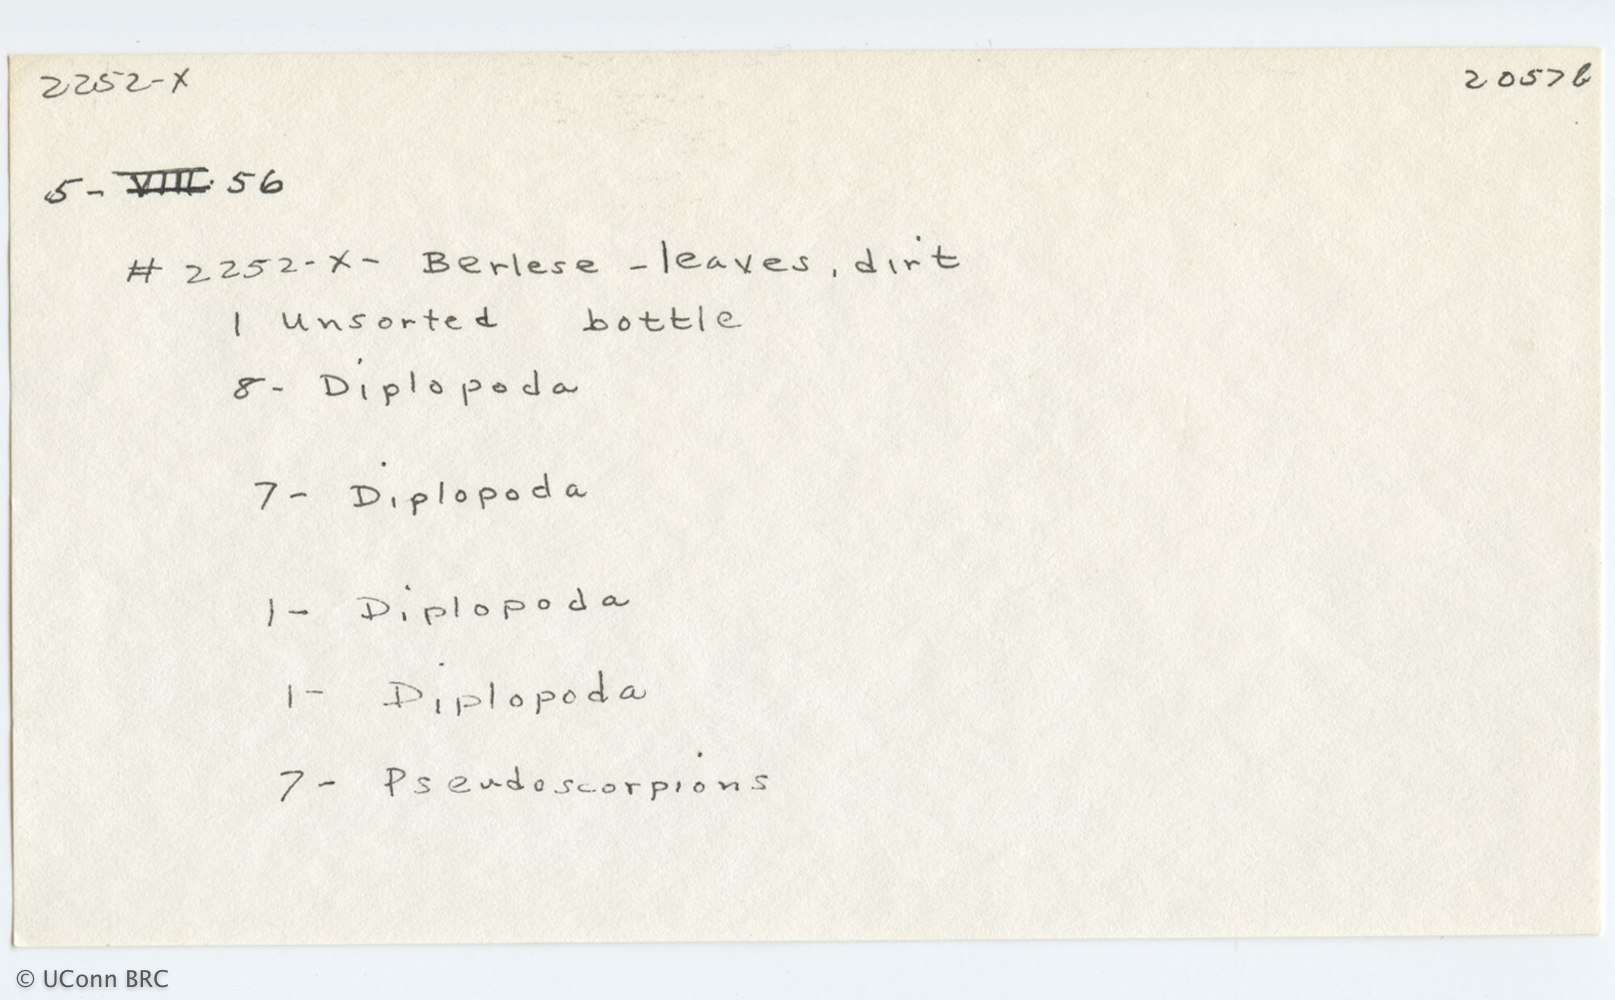 2252-X 20576
5-VIII-56
# 2252-X- Berlese - leaves, dirt
1 Unsorted bottle
8- Diplopoda
7- Diplopoda
1- Diplopoda
1- Diplopoda
7- Pseudoscorpions
© UConn BRC